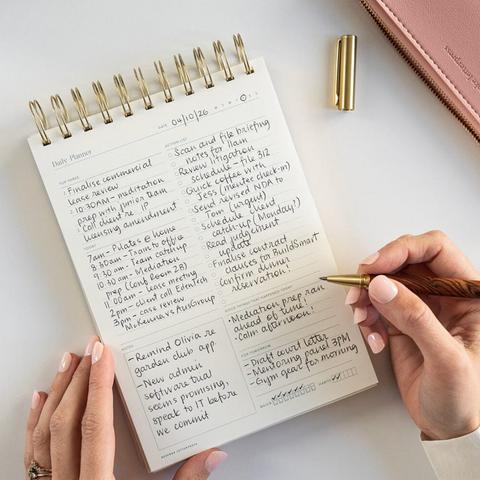 Daily Planner
DATE 04/10/26
M T W T F S S
TOP THREE
Finalise commercial
lease review
10:30AM - meditation
prep with junior team
Call client re. IP
licensing amendment
TODAY
7am - Pilates @ home
8.30am - Train to office
9.30am - Team catchup
10.30am - Mediation
prep (Conf Room 2B)
11.00am - lease meeting
2pm - Client call EdenTech
3pm - case review
McKenna vs AusGroup
ACTION LIST
Scan and file briefing
notes for 11am
Review litigation
schedule - file 312
Quick coffee with
Jess (mentee check-in)
Send revised NDA to
Tom (urgent)
Schedule client
catch-up (Monday?)
Read judgement
update
Finalise contract
clauses to BuildSmart
Confirm dinner
reservation!
THINGS THAT HAPPENED TODAY
• Mediation prep ran
ahead of time!
• Calm afternoon!
NOTES
- Remind Olivia re
garden club app.
- New admin
software trial
seems promising,
speak to IT before
we commit
FOR TOMORROW
- Draft court letter
- Mentoring panel 3PM
- Gym gear for morning
WATER
HABITS